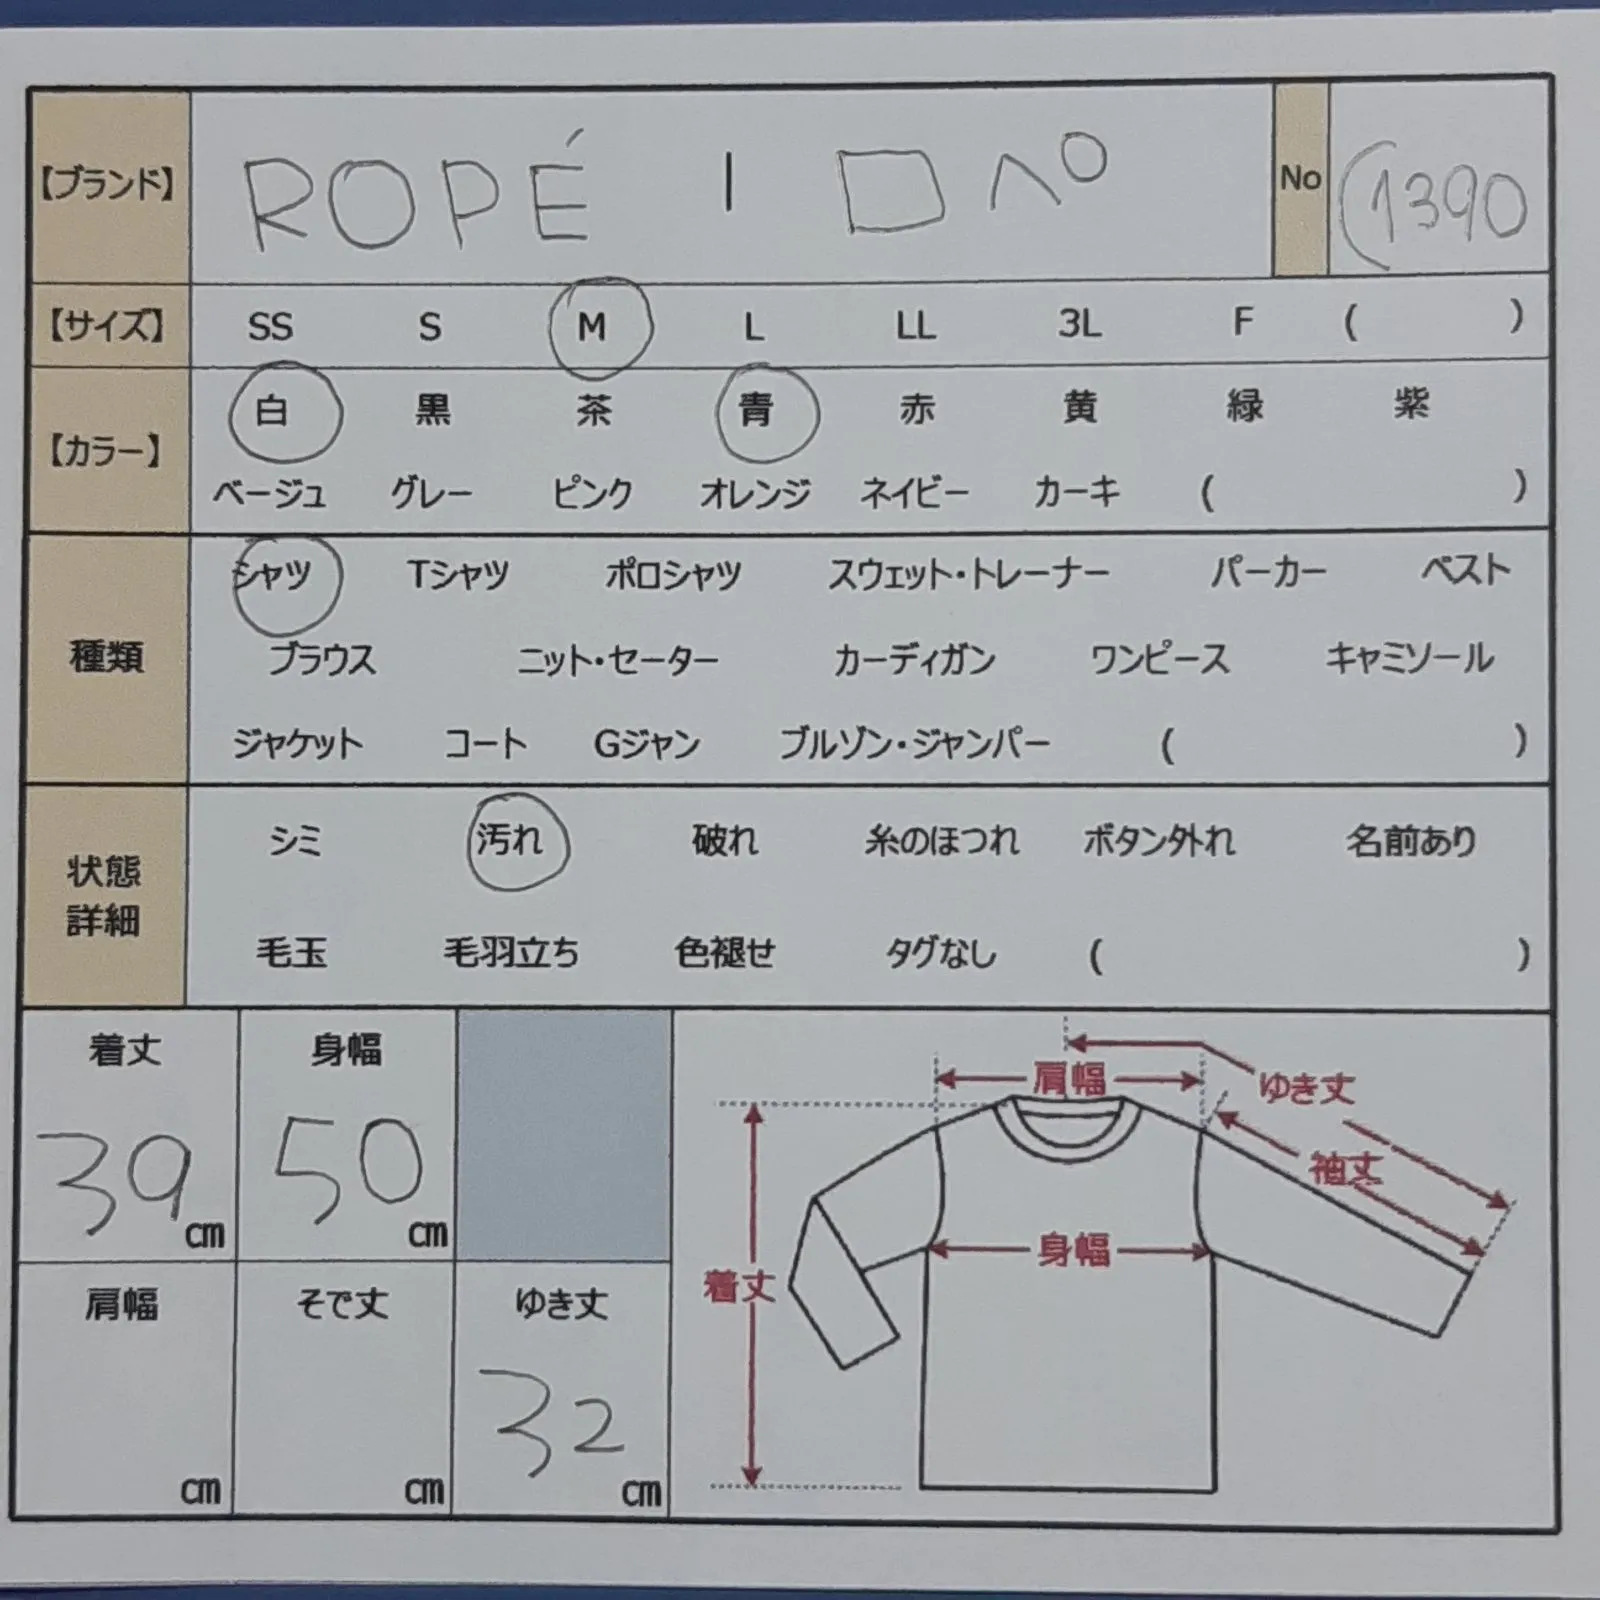 【ブランド】 ROPÉ | ロペ No (1390
【サイズ】 SS S M L LL 3L F ( )
【カラー】 白 黒 茶 青 赤 黄 緑 紫
ベージュ グレー ピンク オレンジ ネイビー カーキ ( )
種類 シャツ Tシャツ ポロシャツ スウェット・トレーナー パーカー ベスト
ブラウス ニット・セーター カーディガン ワンピース キャミソール
ジャケット コート Gジャン ブルゾン・ジャンパー ( )
状態
詳細
シミ 汚れ 破れ 糸のほつれ ボタン外れ 名前あり
毛玉 毛羽立ち 色褪せ タグなし ( )
着丈 身幅
39cm 50cm
肩幅 そで丈 ゆき丈
cm cm 32cm
肩幅 ゆき丈
袖丈
身幅
着丈